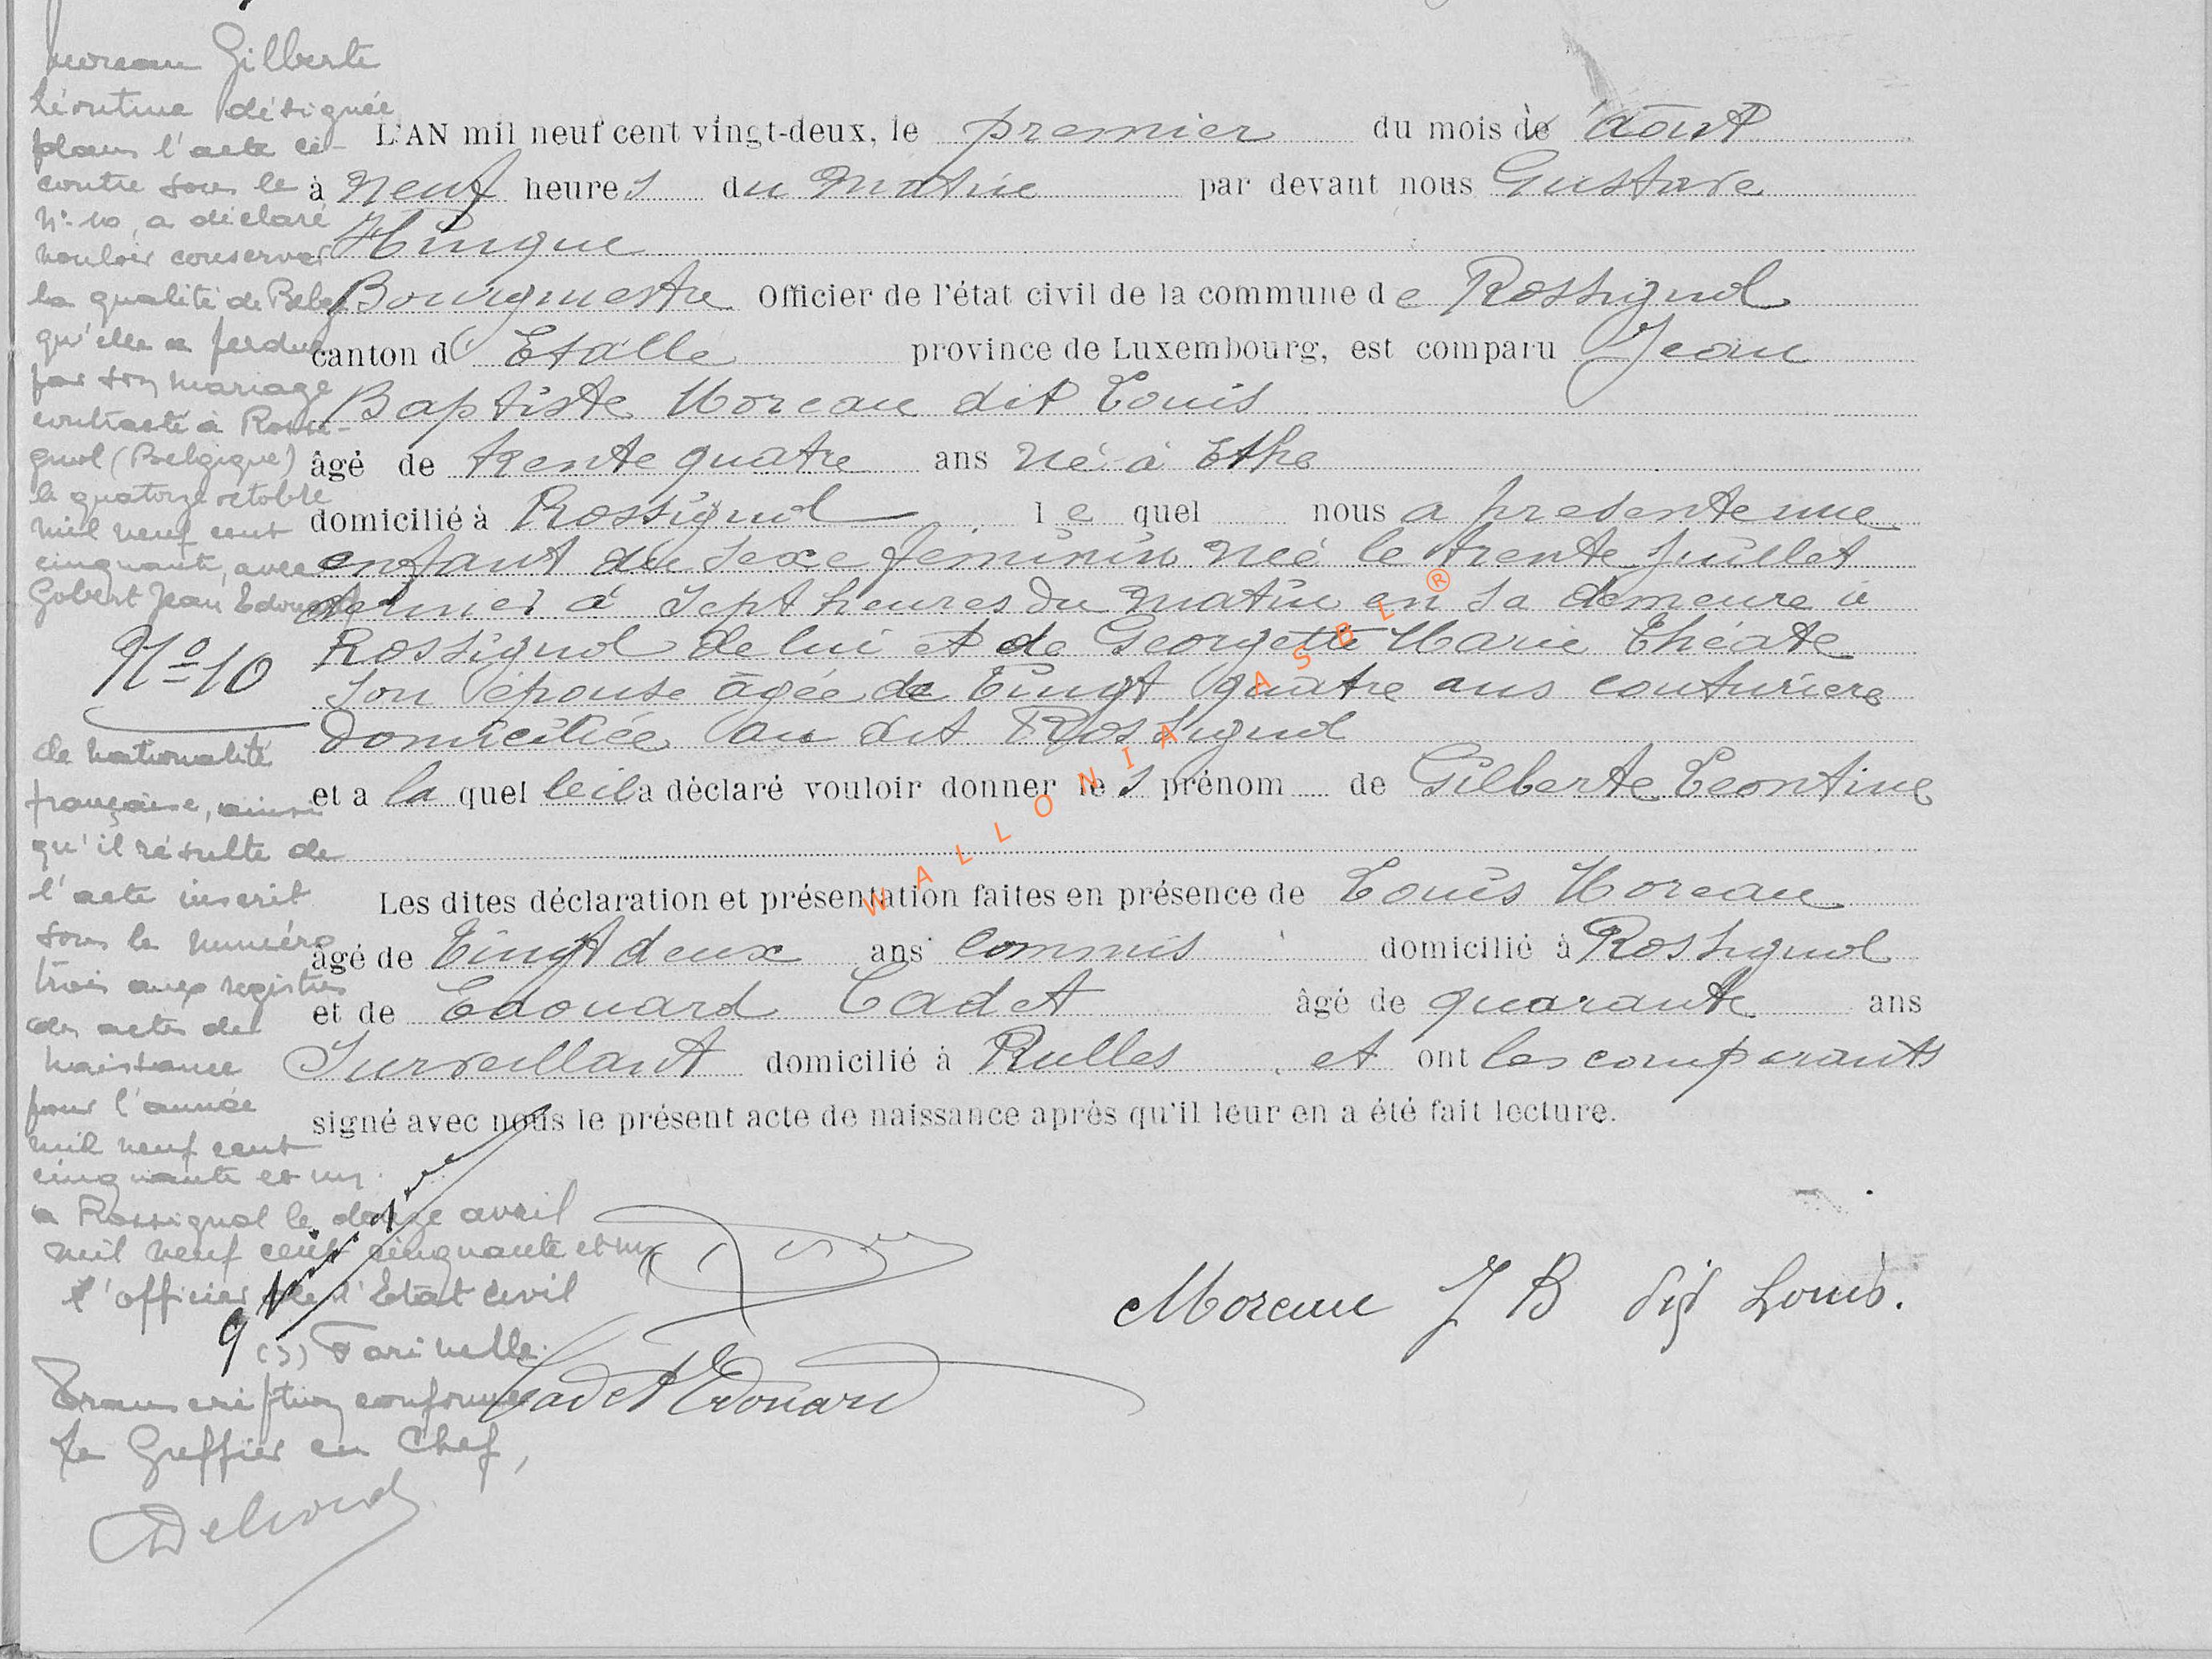 Moreau Gilberte
Léontine désignée
dans l'acte ci-
contre sous le
n° 10, a déclaré
vouloir conserver
la qualité de Belge
qu'elle a perdue
par son mariage
contracté à Rossi-
gnol (Belgique)
le quatorze octobre
mil neuf cent
cinquante, avec
Gobert Jean Edouard
N° 10
de nationalité
française, ainsi
qu'il résulte de
l'acte inscrit
sous le numéro
trois aux registres
des actes de
naissance
pour l'année
mil neuf cent
cinquante et un.
a Rossignol le douze avril
mil neuf cent cinquante et un
l'officier de l'Etat civil
(s) Farinelle.
Transcription conforme
Le Greffier en Chef,
L'AN mil neuf cent vingt-deux, le premier du mois d'août
à neuf heures du matin par devant nous Gustave
Hinque
Bourgmestre Officier de l'état civil de la commune de Rossignol
canton d'Etalle province de Luxembourg, est comparu Jean
Baptiste Moreau dit Louis
âgé de trente quatre ans né à Ethe
domicilié à Rossignol le quel nous a presente une
enfant du sexe féminin née le trente juillet
dernier à sept heures du matin en sa demeure à
Rossignol de lui et de Georgette Marie Théate
son épouse âgée de Vingt quatre ans couturière
domiciliée au dit Rossignol
et a la quelle il a déclaré vouloir donner les prénom de Gilberte Leontine
Les dites déclaration et présentation faites en présence de Louis Moreau
âgé de Vingt deux ans commis domicilié à Rossignol
et de Edouard Cadet âgé de quarante ans
Surveillant domicilié à Rulles et ont les comparants
signé avec nous le présent acte de naissance après qu'il leur en a été fait lecture.
Moreau J B dit Louis.
Cadet Edouard
WALLONIA ASBL ®